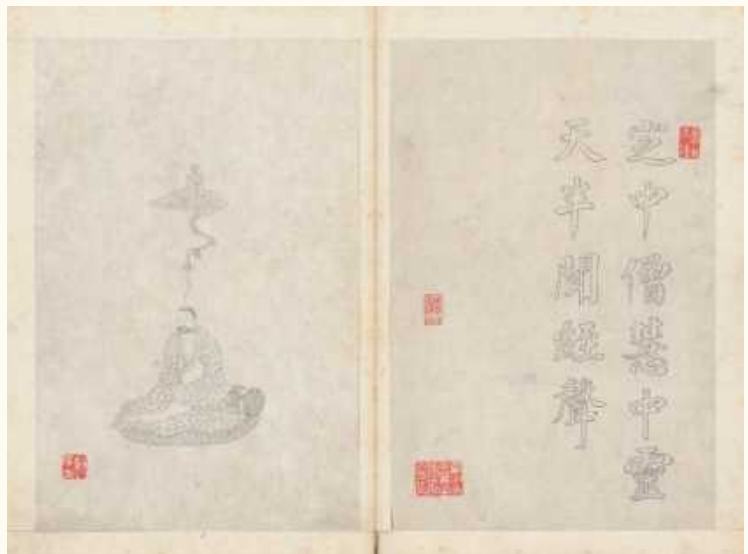 定中僧慧中靈
天半聞經聲